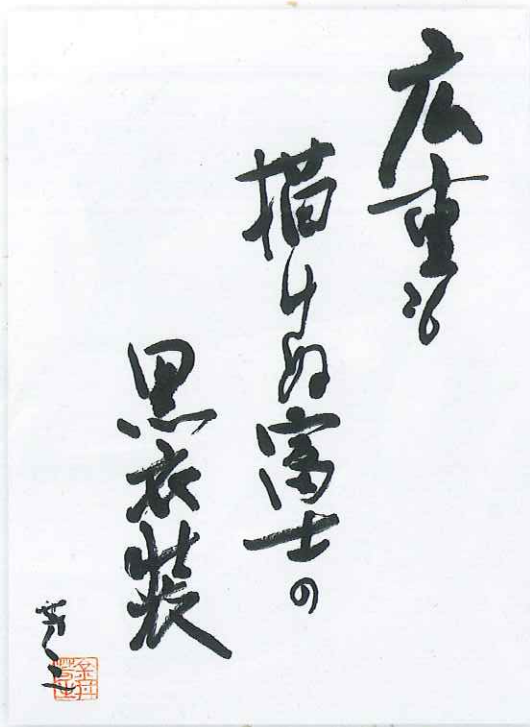 広重も
描けぬ富士の
黒衣装